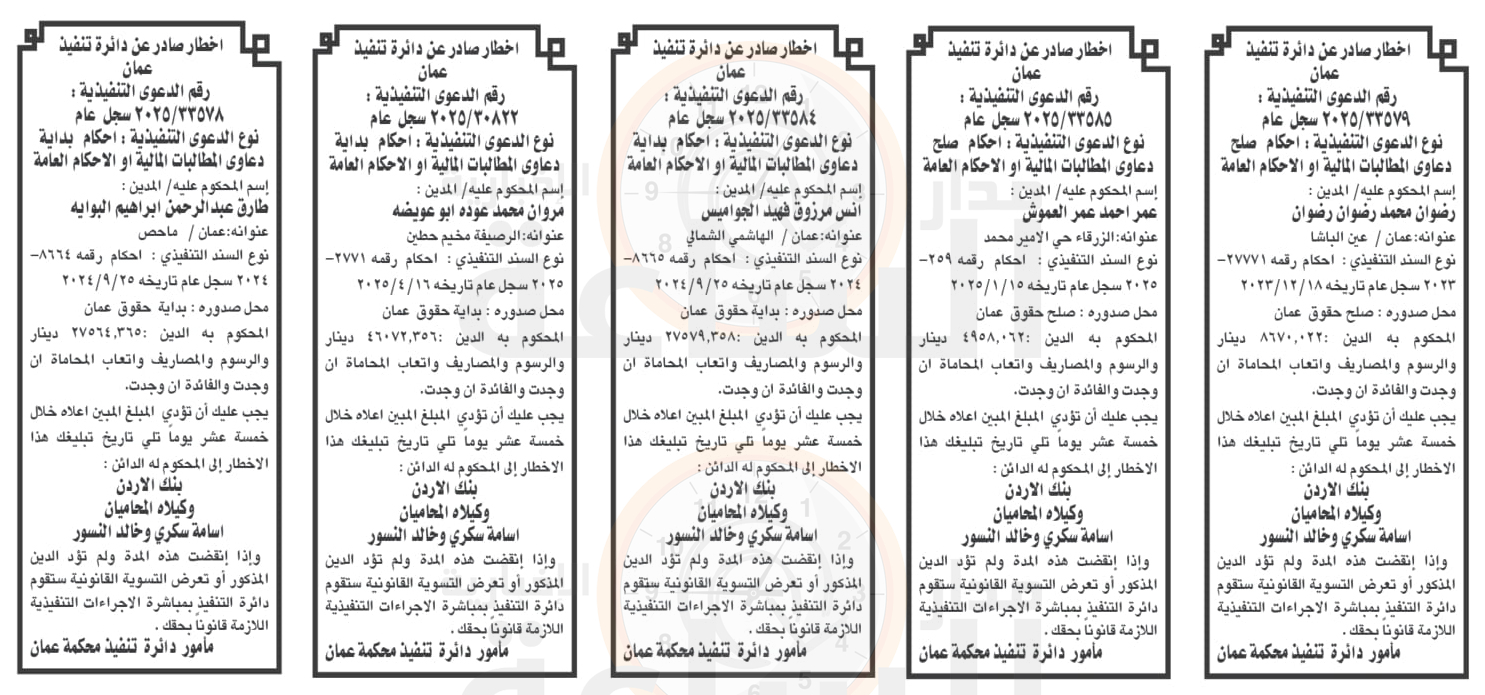 اخطار صادر عن دائرة تنفيذ
عمان
رقم الدعوى التنفيذية :
٢٠٢٥/٣٣٥٧٩ سجل عام
نوع الدعوى التنفيذية : احكام صلح
دعاوى المطالبات المالية او الاحكام العامة
إسم المحكوم عليه/ المدين :
رضوان محمد رضوان رضوان
عنوانه:عمان / عين الباشا
نوع السند التنفيذي : احكام رقمه ٢٧٧٧١-
٢٠٢٣ سجل عام تاريخه ٢٠٢٣/١٢/١٨
محل صدوره : صلح حقوق عمان
المحكوم به الدين :٨٦٧٠,٠٢٢ دينار
والرسوم والمصاريف واتعاب المحاماة ان
وجدت والفائدة ان وجدت.
يجب عليك أن تؤدي المبلغ المبين اعلاه خلال
خمسة عشر يوماً تلي تاريخ تبليغك هذا
الاخطار إلى المحكوم له الدائن :
بنك الاردن
وكيلاه المحاميان
اسامة سكري وخالد النسور
وإذا إنقضت هذه المدة ولم تؤد الدين
المذكور أو تعرض التسوية القانونية ستقوم
دائرة التنفيذ بمباشرة الاجراءات التنفيذية
اللازمة قانوناً بحقك .
مأمور دائرة تنفيذ محكمة عمان
اخطار صادر عن دائرة تنفيذ
عمان
رقم الدعوى التنفيذية :
٢٠٢٥/٣٣٥٨٥ سجل عام
نوع الدعوى التنفيذية : احكام صلح
دعاوى المطالبات المالية او الاحكام العامة
إسم المحكوم عليه/ المدين :
عمر احمد عمر العموش
عنوانه:الزرقاء حي الامير محمد
نوع السند التنفيذي : احكام رقمه ٢٥٩-
٢٠٢٥ سجل عام تاريخه ٢٠٢٥/١/١٥
محل صدوره : صلح حقوق عمان
المحكوم به الدين :٤٩٥٨,٠٦٢ دينار
والرسوم والمصاريف واتعاب المحاماة ان
وجدت والفائدة ان وجدت.
يجب عليك أن تؤدي المبلغ المبين اعلاه خلال
خمسة عشر يوماً تلي تاريخ تبليغك هذا
الاخطار إلى المحكوم له الدائن :
بنك الاردن
وكيلاه المحاميان
اسامة سكري وخالد النسور
وإذا إنقضت هذه المدة ولم تؤد الدين
المذكور أو تعرض التسوية القانونية ستقوم
دائرة التنفيذ بمباشرة الاجراءات التنفيذية
اللازمة قانوناً بحقك .
مأمور دائرة تنفيذ محكمة عمان
اخطار صادر عن دائرة تنفيذ
عمان
رقم الدعوى التنفيذية :
٢٠٢٥/٣٣٥٨٤ سجل عام
نوع الدعوى التنفيذية : احكام بداية
دعاوى المطالبات المالية او الاحكام العامة
إسم المحكوم عليه/ المدين :
انس مرزوق فهيد الجواميس
عنوانه:عمان / الهاشمي الشمالي
نوع السند التنفيذي : احكام رقمه ٨٦٦٥-
٢٠٢٤ سجل عام تاريخه ٢٠٢٤/٩/٢٥
محل صدوره : بداية حقوق عمان
المحكوم به الدين :٢٧٥٧٩,٣٥٨ دينار
والرسوم والمصاريف واتعاب المحاماة ان
وجدت والفائدة ان وجدت.
يجب عليك أن تؤدي المبلغ المبين اعلاه خلال
خمسة عشر يوماً تلي تاريخ تبليغك هذا
الاخطار إلى المحكوم له الدائن :
بنك الاردن
وكيلاه المحاميان
اسامة سكري وخالد النسور
وإذا إنقضت هذه المدة ولم تؤد الدين
المذكور أو تعرض التسوية القانونية ستقوم
دائرة التنفيذ بمباشرة الاجراءات التنفيذية
اللازمة قانوناً بحقك .
مأمور دائرة تنفيذ محكمة عمان
اخطار صادر عن دائرة تنفيذ
عمان
رقم الدعوى التنفيذية :
٢٠٢٥/٣٠٨٢٢ سجل عام
نوع الدعوى التنفيذية : احكام بداية
دعاوى المطالبات المالية او الاحكام العامة
إسم المحكوم عليه/ المدين :
مروان محمد عوده ابو عويضه
عنوانه:الرصيفة مخيم حطين
نوع السند التنفيذي : احكام رقمه ٢٧٧١-
٢٠٢٥ سجل عام تاريخه ٢٠٢٥/٤/١٦
محل صدوره : بداية حقوق عمان
المحكوم به الدين :٤٦٠٧٢,٣٥٦ دينار
والرسوم والمصاريف واتعاب المحاماة ان
وجدت والفائدة ان وجدت.
يجب عليك أن تؤدي المبلغ المبين اعلاه خلال
خمسة عشر يوماً تلي تاريخ تبليغك هذا
الاخطار إلى المحكوم له الدائن :
بنك الاردن
وكيلاه المحاميان
اسامة سكري وخالد النسور
وإذا إنقضت هذه المدة ولم تؤد الدين
المذكور أو تعرض التسوية القانونية ستقوم
دائرة التنفيذ بمباشرة الاجراءات التنفيذية
اللازمة قانوناً بحقك .
مأمور دائرة تنفيذ محكمة عمان
اخطار صادر عن دائرة تنفيذ
عمان
رقم الدعوى التنفيذية :
٢٠٢٥/٣٣٥٧٨ سجل عام
نوع الدعوى التنفيذية : احكام بداية
دعاوى المطالبات المالية او الاحكام العامة
إسم المحكوم عليه/ المدين :
طارق عبدالرحمن ابراهيم البوايه
عنوانه:عمان / ماحص
نوع السند التنفيذي : احكام رقمه ٨٦٦٤-
٢٠٢٤ سجل عام تاريخه ٢٠٢٤/٩/٢٥
محل صدوره : بداية حقوق عمان
المحكوم به الدين :٢٧٥٦٤,٣٦٥ دينار
والرسوم والمصاريف واتعاب المحاماة ان
وجدت والفائدة ان وجدت.
يجب عليك أن تؤدي المبلغ المبين اعلاه خلال
خمسة عشر يوماً تلي تاريخ تبليغك هذا
الاخطار إلى المحكوم له الدائن :
بنك الاردن
وكيلاه المحاميان
اسامة سكري وخالد النسور
وإذا إنقضت هذه المدة ولم تؤد الدين
المذكور أو تعرض التسوية القانونية ستقوم
دائرة التنفيذ بمباشرة الاجراءات التنفيذية
اللازمة قانوناً بحقك .
مأمور دائرة تنفيذ محكمة عمان